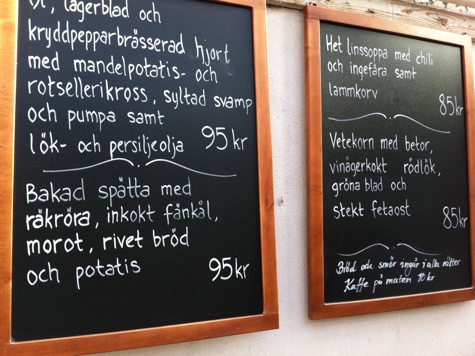 öl, lagerblad och
kryddpepparbrässerad hjort
med mandelpotatis- och
rotsellerikross, syltad svamp
och pumpa samt
lök- och persiljeolja 95 kr
Bakad spätta med
råkröra, inkokt fänkål,
morot, rivet bröd
och potatis 95 kr
Het linssoppa med chili
och ingefära samt
lammkorv 85 kr
Vetekorn med betor,
vinägerkokt rödlök,
gröna blad och
stekt fetaost 85 kr
Bröd och smör ingår i alla rätter
Kaffe på maten 10 kr